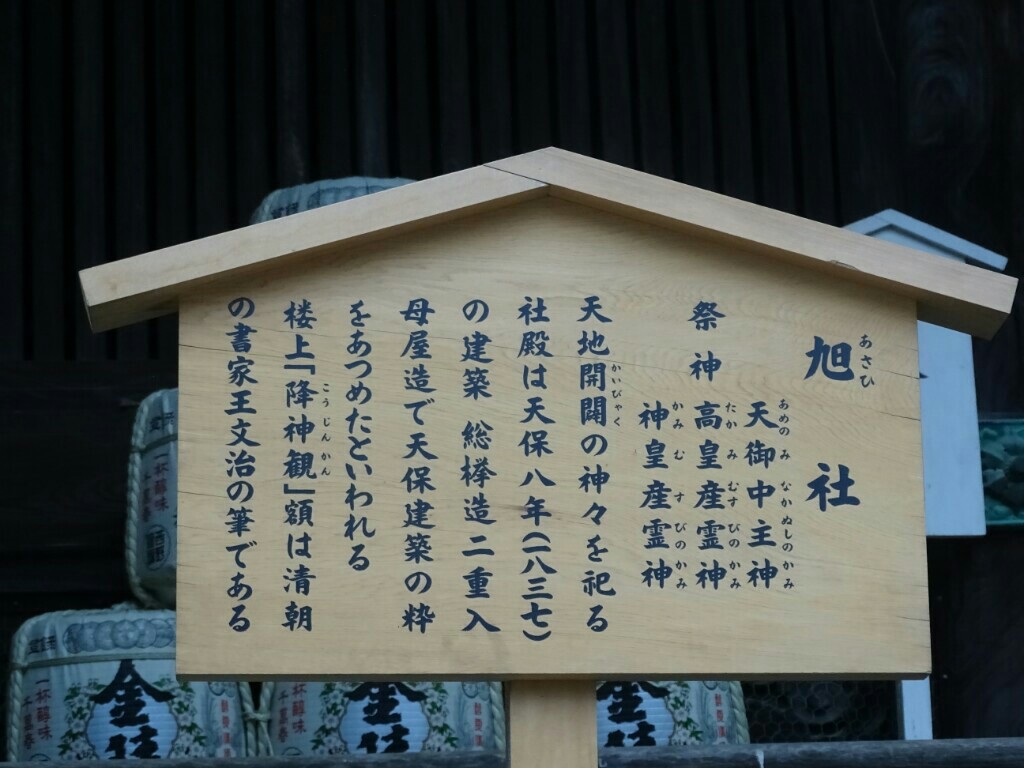 旭社
あさひ
天御中主神
あめのみなかぬしのかみ
祭神 高皇産霊神
たかみむすびのかみ
神皇産霊神
かみむすびのかみ
天地開闢の神々を祀る
かいびゃく
社殿は天保八年(一八三七)
の建築 総欅造二重入
母屋造で天保建築の粋
をあつめたといわれる
楼上「降神観」額は清朝
こうじんかん
の書家王文治の筆である
一杯醇味
金陵
一杯醇味
金陵
金陵